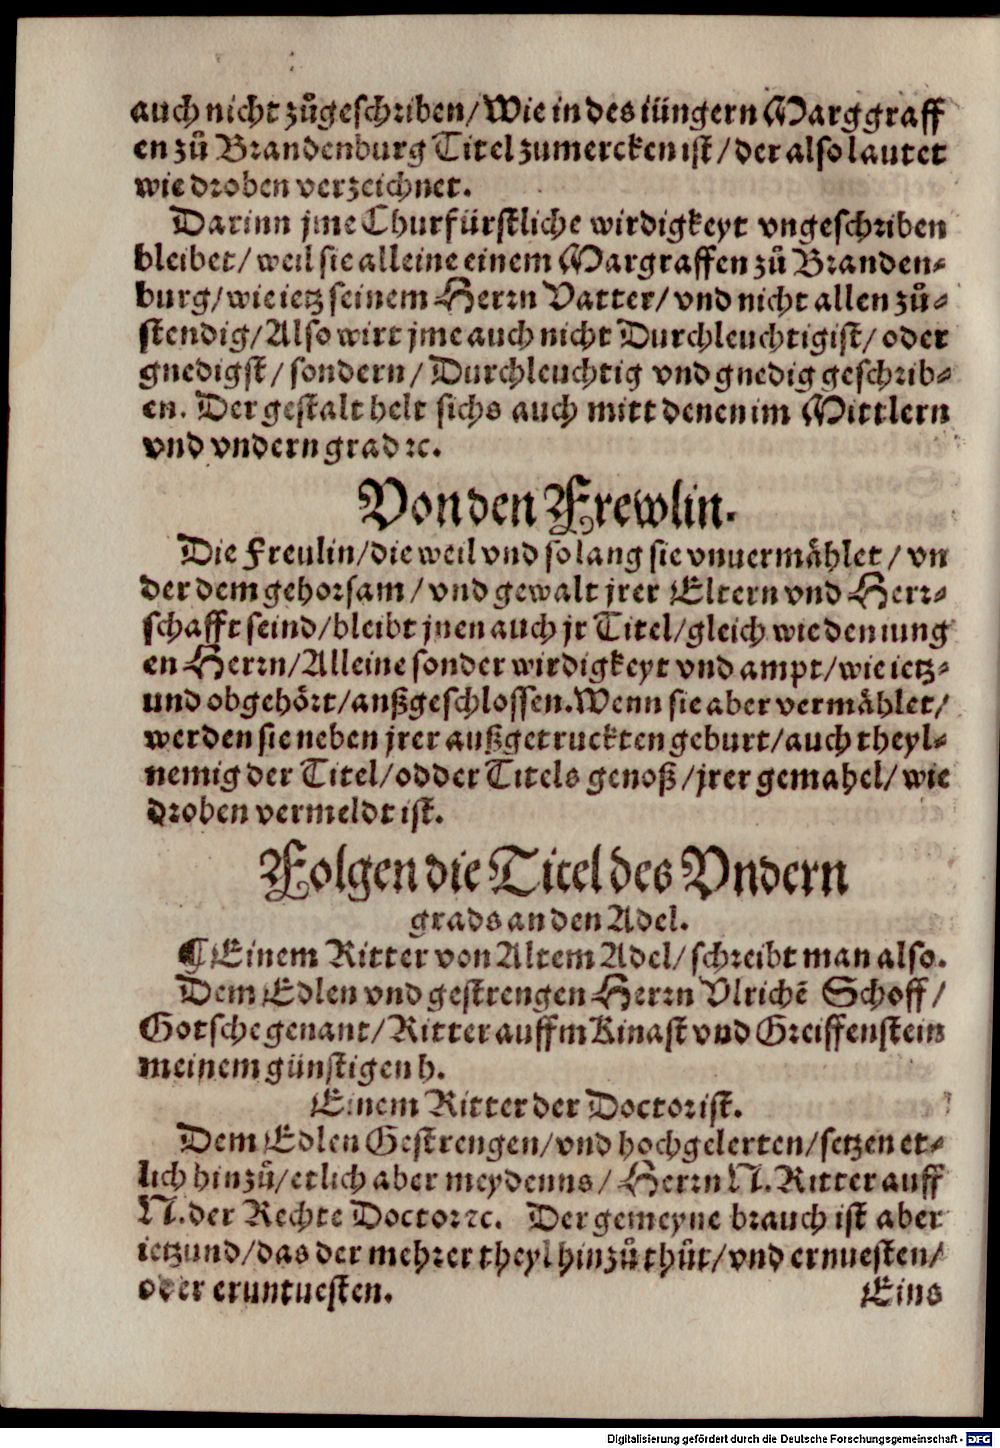 auch nicht zůgeschriben/ Wie in des iüngern Marggraff
en zů Brandenburg Titel zumercken ist/ der also lautet
wie droben verzeichnet.
Darinn jme Churfürstliche wirdigkeyt vngeschriben
bleibet/ weil sie alleine einem Margraffen zů Branden-
burg/ wie ietz seinem Herrn Vatter/ vnd nicht allen zů-
stendig/ Also wirt jme auch nicht Durchleuchtigist/ oder
gnedigst/ sondern/ Durchleuchtig vnd gnedig geschrib-
en. Der gestalt helt sichs auch mitt denen im Mittlern
vnd vndern grad ꝛc.
Von den Frewlin.
Die Freulin/ die weil vnd so lang sie vnuermåhlet/ vn
der dem gehorsam/ vnd gewalt jrer Eltern vnd Herr-
schafft seind/ bleibt jnen auch jr Titel/ gleich wie den iung
en Herrn/ Alleine sonder wirdigkeyt vnd ampt/ wie ietz-
und obgehört/ außgeschlossen. Wenn sie aber vermåhlet/
werden sie neben jrer außgetruckten geburt/ auch theyl-
nemig der Titel/ odder Titels genoß/ jrer gemahel/ wie
droben vermeldt ist.
Folgen die Titel des Vndern
grads an den Adel.
¶ Einem Ritter von Altem Adel/ schreibt man also.
Dem Edlen vnd gestrengen Herrn Vlrichē Schoff/
Gotsche genant/ Ritter auffm Kinast vnd Greiffenstein
meinem günstigen h.
Einem Ritter der Doctor ist.
Dem Edlen Gestrengen/ vnd hochgelerten/ setzen et-
lich hinzů/ etlich aber meydenns/ Herrn N. Ritter auff
N. der Rechte Doctor ꝛc. Der gemeyne brauch ist aber
ietzund/ das der mehrer theyl hinzů thůt/ vnd ernuesten/
oder eruntuesten.
Eins
Digitalisierung gefördert durch die Deutsche Forschungsgemeinschaft - DFG